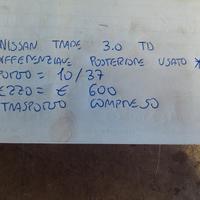 NISSAN TRADE 3.0 TD
IFFERENZIALE POSTERIORE USATO *
PORTO = 10/37
EZZO = € 600
TRASPORTO COMPRESO